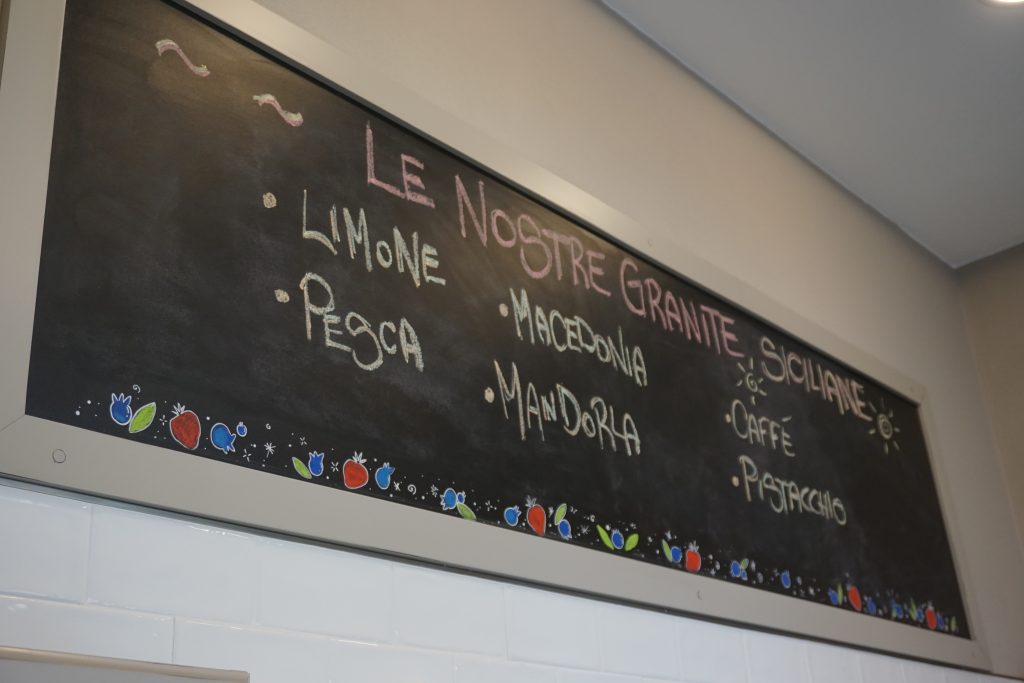 LE NOSTRE GRANITE SICILIANE
• LIMONE
• PESCA
• MACEDONIA
• MANDORLA
• CAFFÉ
• PISTACCHIO